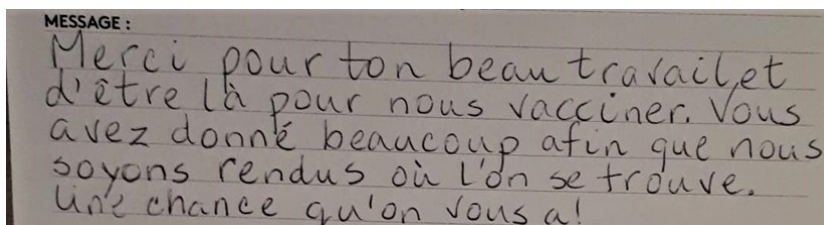 MESSAGE :
Merci pour ton beau travail, et
d'être là pour nous vacciner. Vous
avez donné beaucoup afin que nous
soyons rendus où l'on se trouve.
Une chance qu'on vous a!